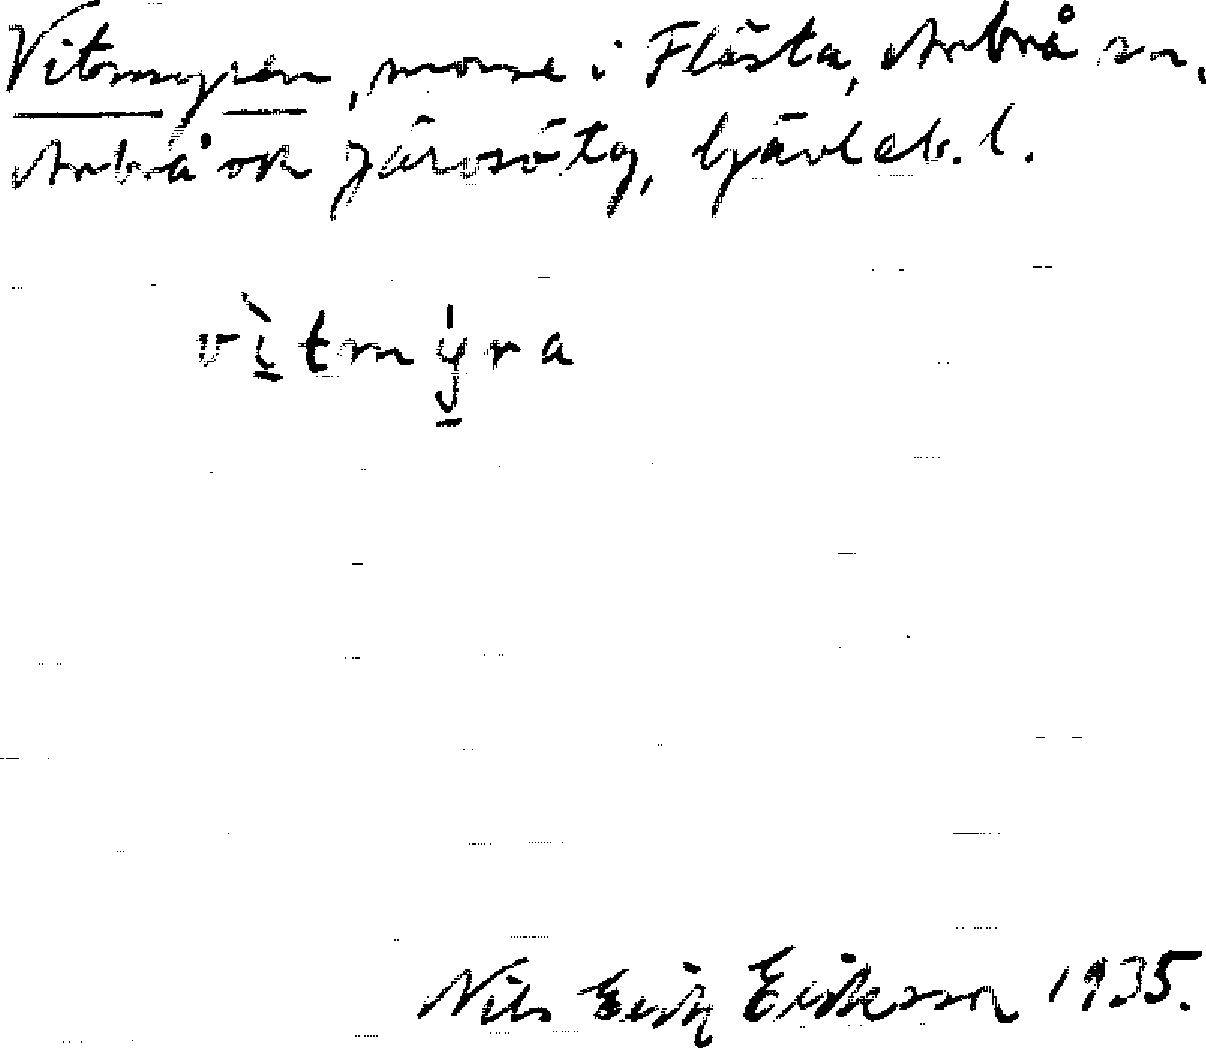 Vitmyren, mosse i Flästa, Arbrå sn,
Arbrå ok Järvsö tg, Gävleb. l.
vìtmy̍ra
Nils Erik Eriksson 1935.